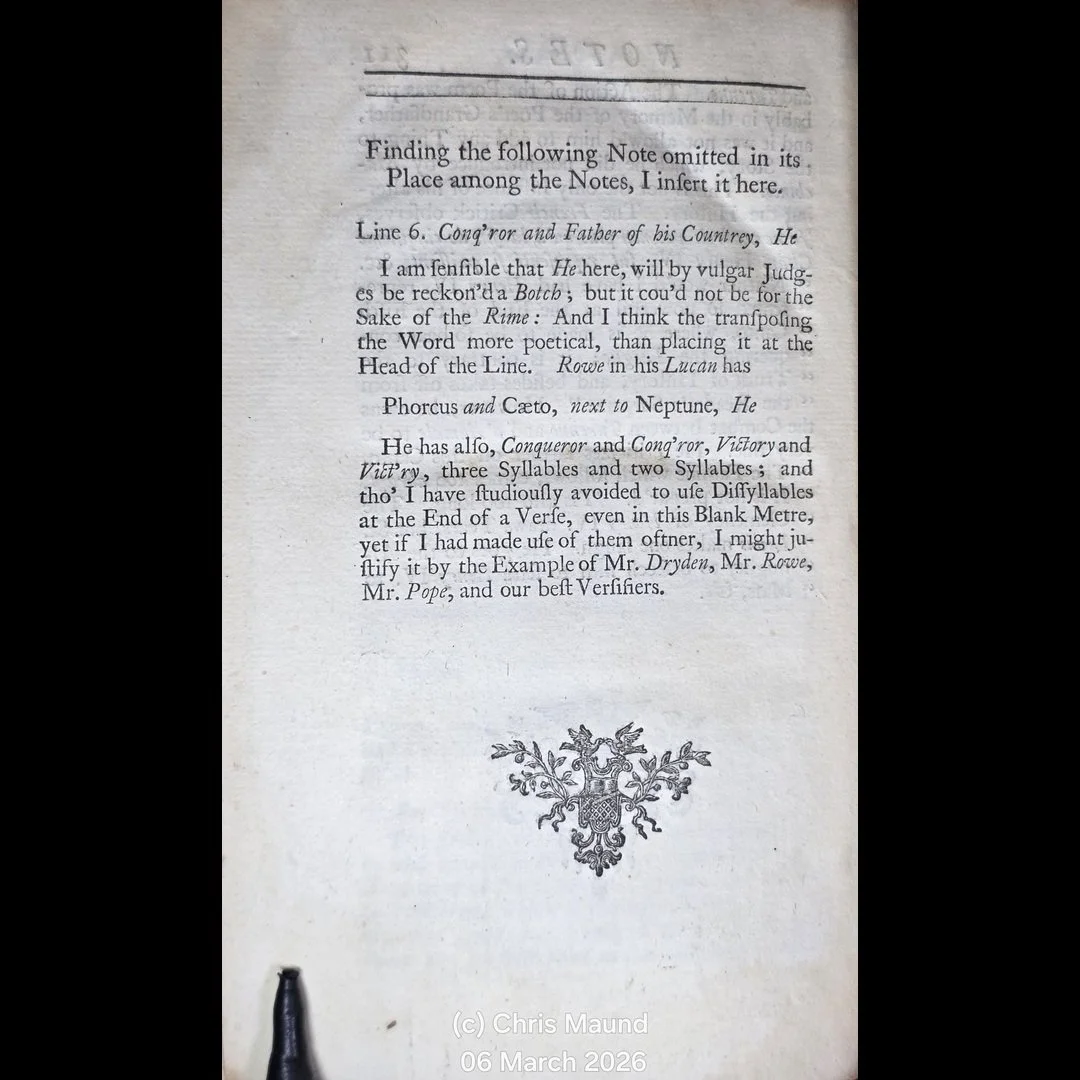 NOTES. 311
Finding the following Note omitted in its
Place among the Notes, I inſert it here.
Line 6. Conq'ror and Father of his Countrey, He
I am ſenſible that He here, will by vulgar Judg-
es be reckon'd a Botch; but it cou'd not be for the
Sake of the Rime: And I think the tranſpoſing
the Word more poetical, than placing it at the
Head of the Line. Rowe in his Lucan has
Phorcus and Cæto, next to Neptune, He
He has alſo, Conqueror and Conq'ror, Victory and
Vict'ry, three Syllables and two Syllables; and
tho' I have ſtudiouſly avoided to uſe Diſſyllables
at the End of a Verſe, even in this Blank Metre,
yet if I had made uſe of them oftner, I might ju-
ſtify it by the Example of Mr. Dryden, Mr. Rowe,
Mr. Pope, and our beſt Verſifiers.
(c) Chris Maund
06 March 2026